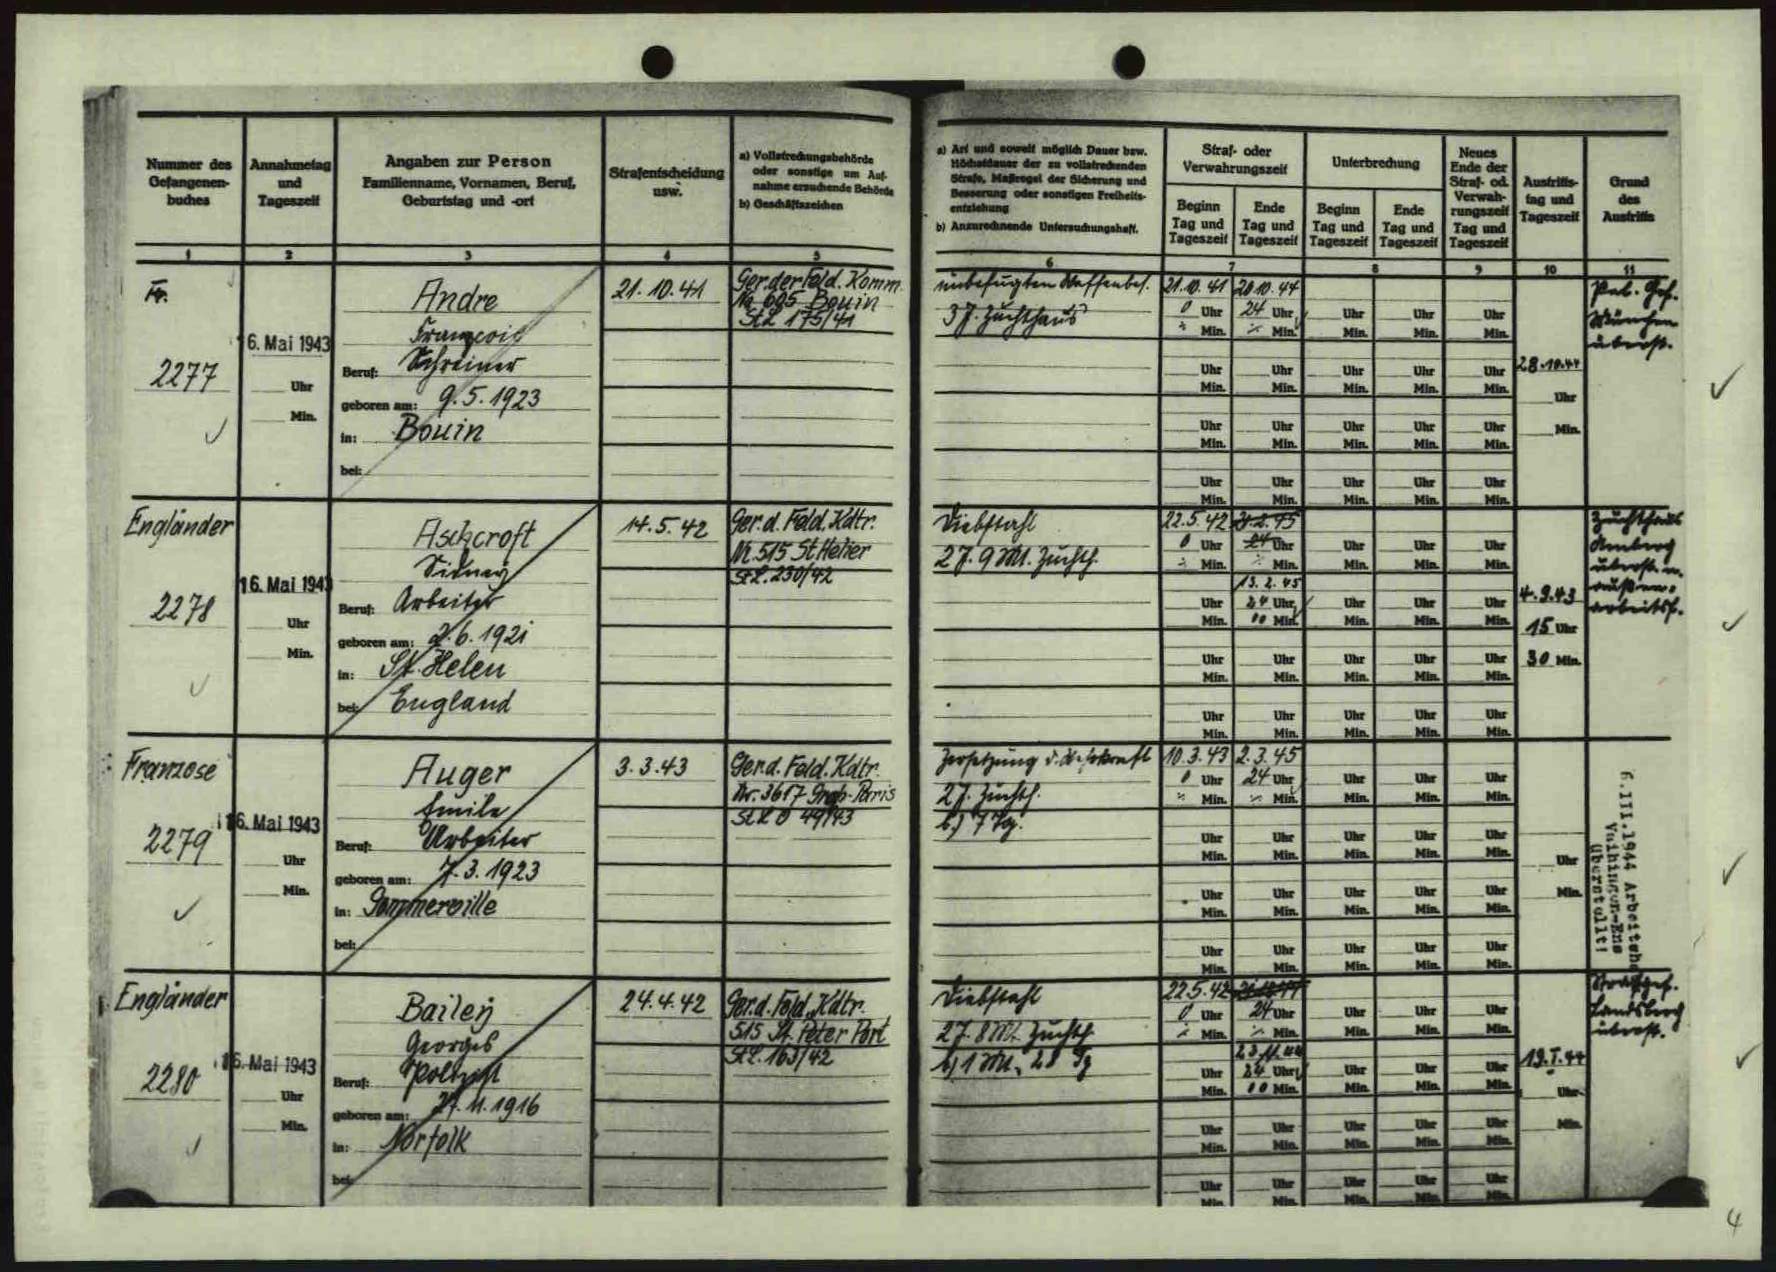 Nummer des
Gefangenen-
buches
Annahmetag
und
Tageszeit
Angaben zur Person
Familienname, Vornamen, Beruf,
Geburtstag und -ort
Strafentscheidung
usw.
a) Vollstreckungsbehörde
oder sonstige um Auf-
nahme ersuchende Behörde
b) Geschäftszeichen
a) Art und soweit möglich Dauer bzw.
Höchstdauer der zu vollstreckenden
Strafe, Maßregel der Sicherung und
Besserung oder sonstigen Freiheits-
entziehung
b) Anzurechnende Untersuchungshaft.
Straf- oder
Verwahrungszeit
Beginn
Tag und
Tageszeit
Ende
Tag und
Tageszeit
Unterbrechung
Beginn
Tag und
Tageszeit
Ende
Tag und
Tageszeit
Neues
Ende der
Straf- od.
Verwah-
rungszeit
Tag und
Tageszeit
Austritts-
tag und
Tageszeit
Grund
des
Austritts
1 2 3 4 5 6 7 8 9 10 11
Fr.
2277
16. Mai 1943
Uhr
Min.
Andre
François
Beruf: Schreiner
geboren am: 9.5.1923
in: Bouin
bei:
21.10.41
Ger.der Feld.Komm.
Nr 605 Bouin
St.L 175/41
unbefugten Waffenbes.
3 J. Zuchthaus
21.10.41 20.10.44
0 Uhr 24 Uhr Uhr Uhr Uhr
Min. Min. Min. Min. Min.
28.10.44
Uhr
Min.
Pol. Gef.
München
überst.
Engländer
2278
16. Mai 1943
Uhr
Min.
Aschcroft
Sidney
Beruf: Arbeiter
geboren am: 2.6.1921
in: St. Helen
bei: England
14.5.42
Ger.d.Feld.Kdtr.
Nr. 515 St Helier
St.L. 230/42
Diebstahl
2 J. 9 Mt. Zuchth.
22.5.42 21.2.45
0 Uhr 24 Uhr Uhr Uhr Uhr
Min. Min. Min. Min. Min.
13.2.45
Uhr 24 Uhr Uhr Uhr Uhr
Min. 00 Min. Min. Min. Min.
4.9.43
15 Uhr
30 Min.
Zuchthaus
Amberg
überst.
arbeitsf.
Franzose
2279
16. Mai 1943
Uhr
Min.
Auger
Emile
Beruf: Arbeiter
geboren am: 7.3.1923
in: Gommerville
bei:
3.3.43
Ger.d.Feld.Kdtr.
Nr. 3617 Groß-Paris
St.L 0 49/43
Zersetzung d. Wehrkraft
2 J. Zuchth.
b) 7 Tg.
10.3.43 2.3.45
0 Uhr 24 Uhr Uhr Uhr Uhr
Min. Min. Min. Min. Min.
Uhr
Min.
9.III.1944 Arbeitsho
Vaihingen-Ens
überstellt!
Engländer
2280
16. Mai 1943
Uhr
Min.
Bailey
Georges
Beruf: Polizist
geboren am: 27.11.1916
in: Norfolk
bei:
24.4.42
Ger.d.Feld.Kdtr.
515 St. Peter Port
St.L. 163/42
Diebstahl
2 J. 8 Mt. Zuchth.
b) 1 Mt. 28 Tg
22.5.42
0 Uhr 24 Uhr Uhr Uhr Uhr
Min. Min. Min. Min. Min.
23.11.44
Uhr 24 Uhr Uhr Uhr Uhr
Min. 00 Min. Min. Min. Min.
19.I.44
Uhr
Min.
Strafgef.
Landsberg
überst.
4